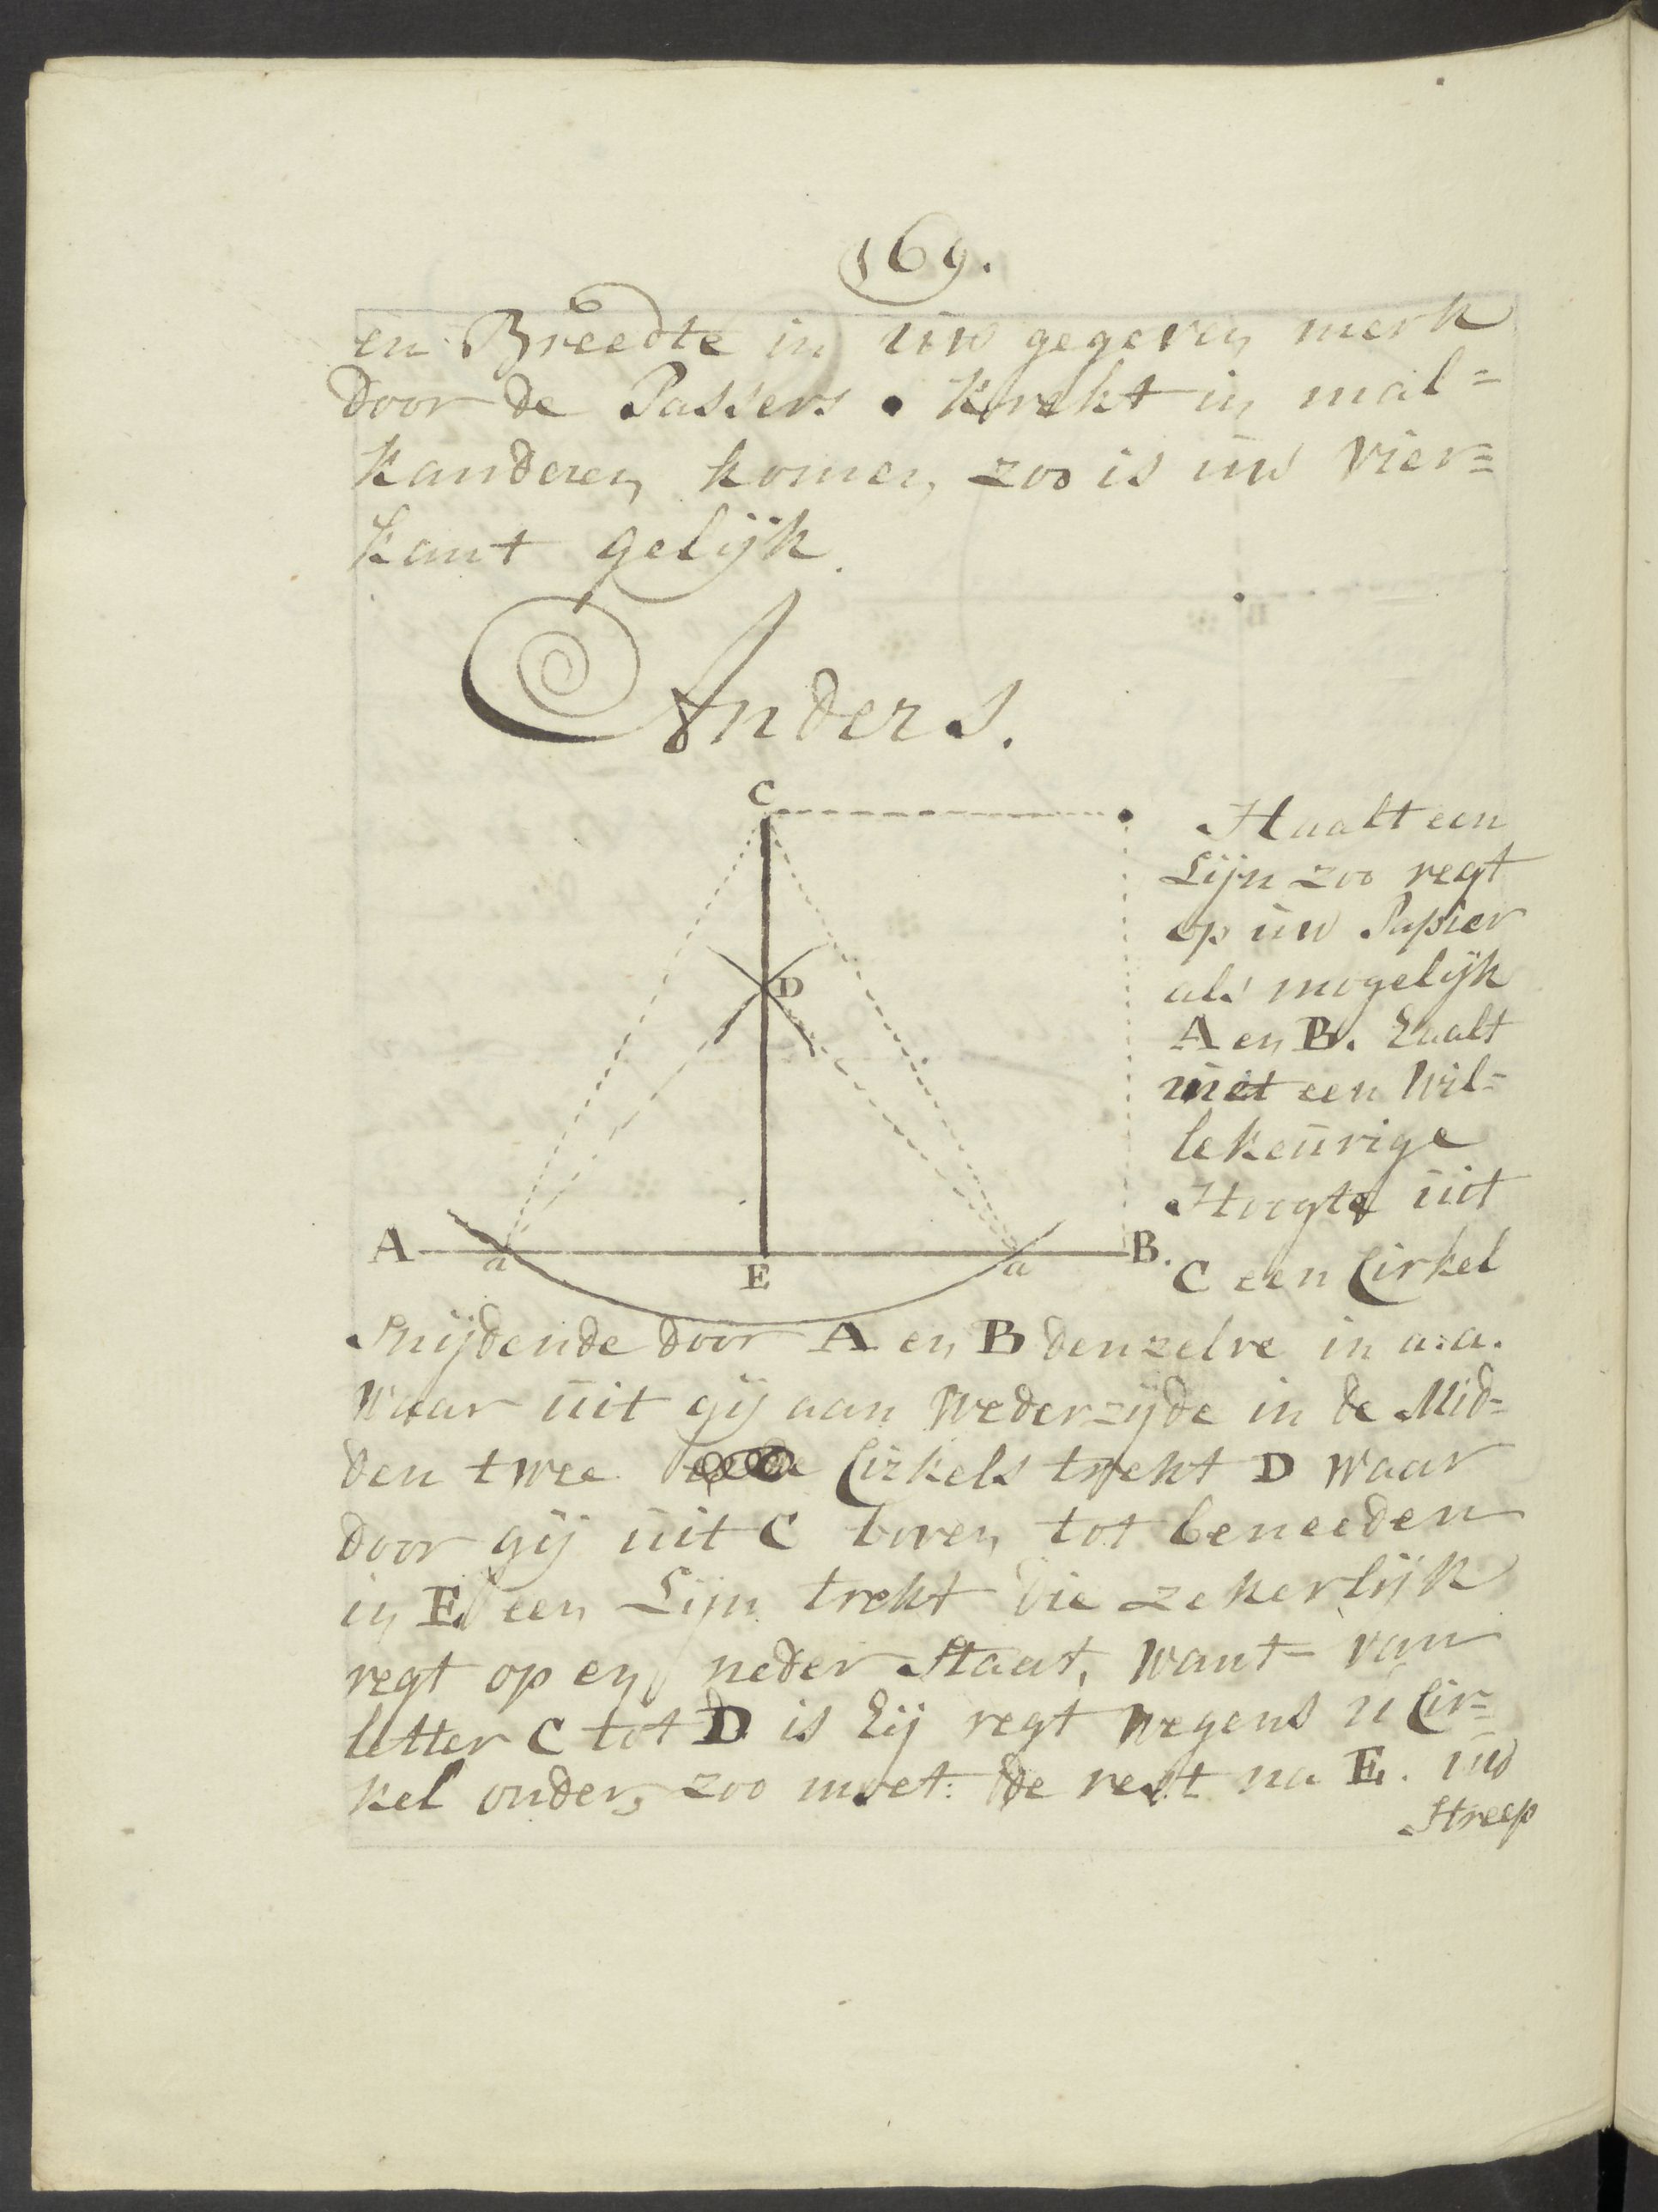 169.
en Breedte in uw gegeven merk
door de Passers krekt in mal=
kanderen komen, zoo is uw vier=
kant gelijk.
Anders.
C
D
A
a
E
a
B.
Haalt een
Lijn zoo regt
op uw Papier
als mogelijk
A en B. Haalt
met een wil=
lekeurige
Hoogte uit
C een Cirkel
Snijdende door A en B denzelve in a:a.
waar uit gij aan wederzijde in de Mid=
den twee Cirkels trekt D waar
door gij uit C boven tot beneeden
in E een Lijn trekt die zekerlijk
regt op en neder Staat, want van
letter C tot D is Hij regt wegens u Cir=
kel onder, zoo moet de rest na E. uw
Streep